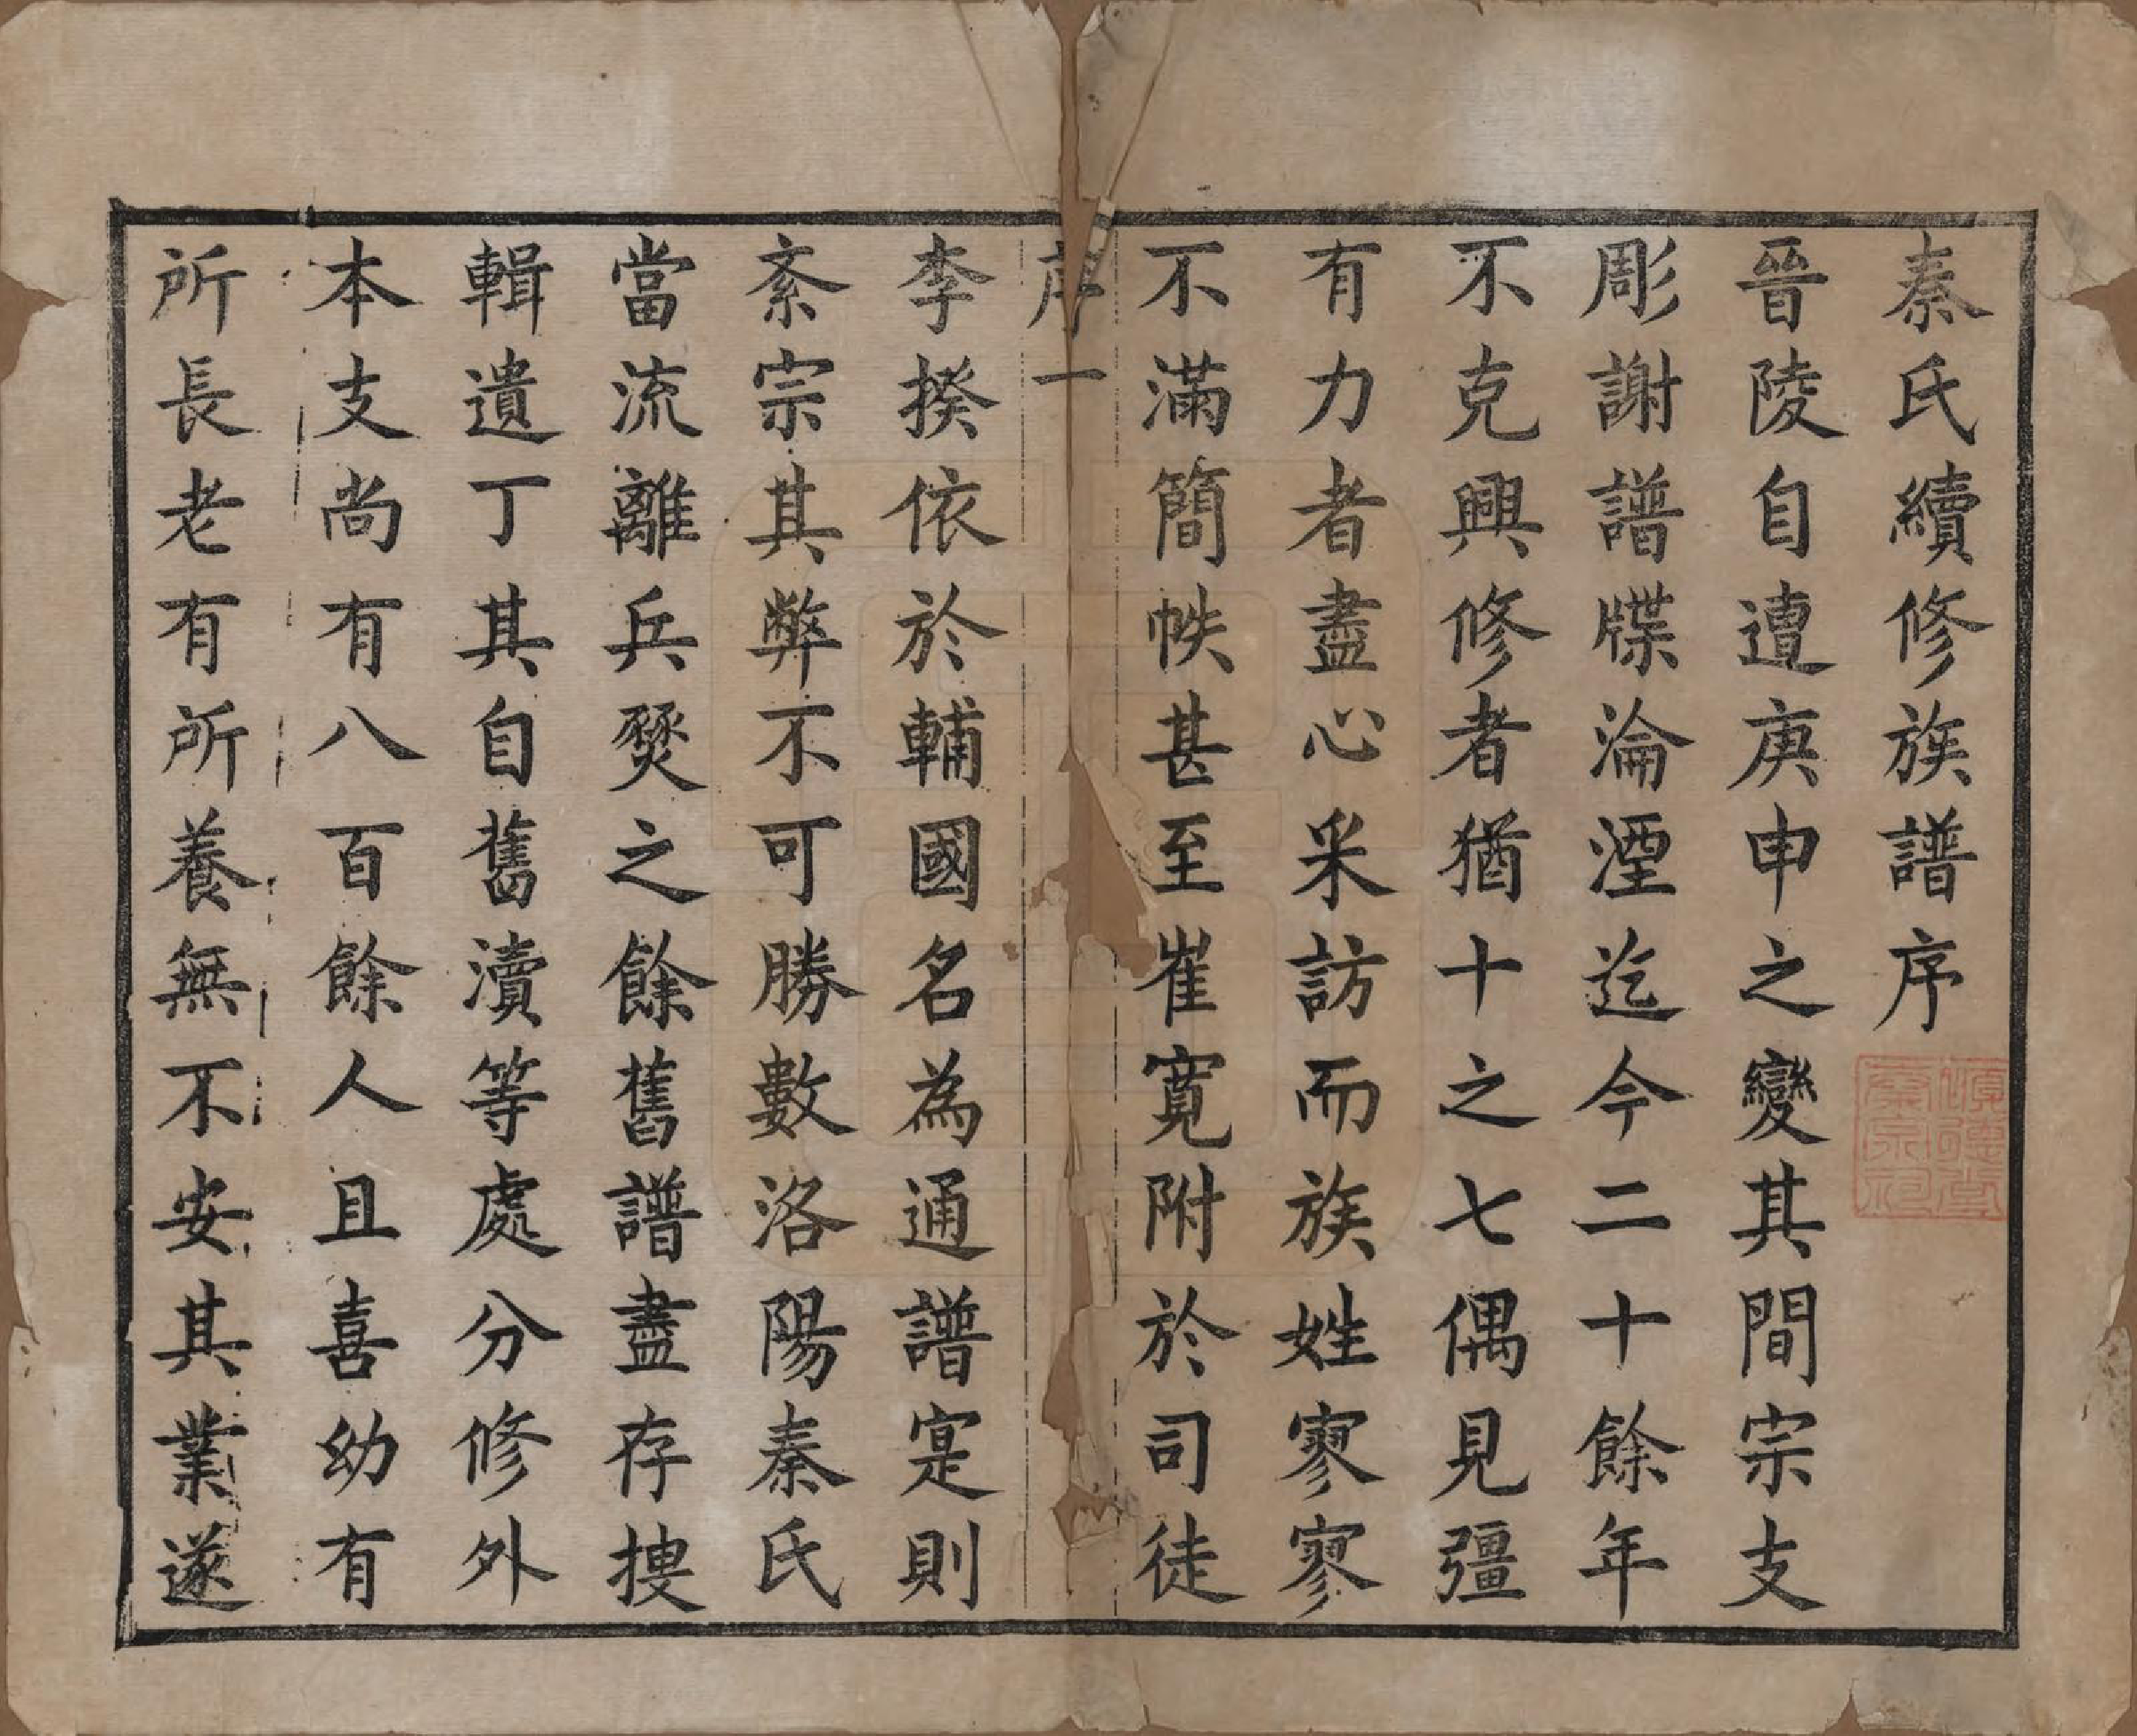 秦氏續修族譜序
晉陵自遭庚申之變其間宗支
彫謝譜牒淪湮迄今二十餘年
不克興修者猶十之七偶見彊
有力者盡心采訪而族姓寥寥
不滿簡帙甚至崔寬附於司徒
序 一
李揆依於輔國名為通譜寔則
紊宗其弊不可勝數洛陽秦氏
當流離兵燹之餘舊譜盡存搜
輯遺丁其自舊瀆等處分修外
本支尚有八百餘人且喜幼有
所長老有所養無不安其業遂
頌德堂
秦宗祠